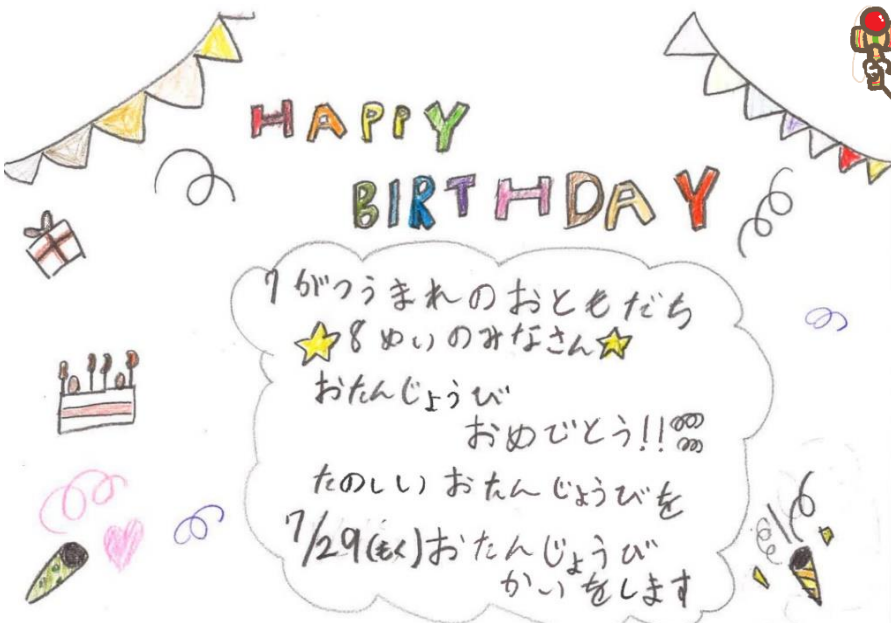 HAPPY
BIRTHDAY
7がつうまれのおともだち
8めいのみなさん
おたんじょうび
おめでとう!!
たのしいおたんじょうびを
7/29(もく)おたんじょうび
かいをします